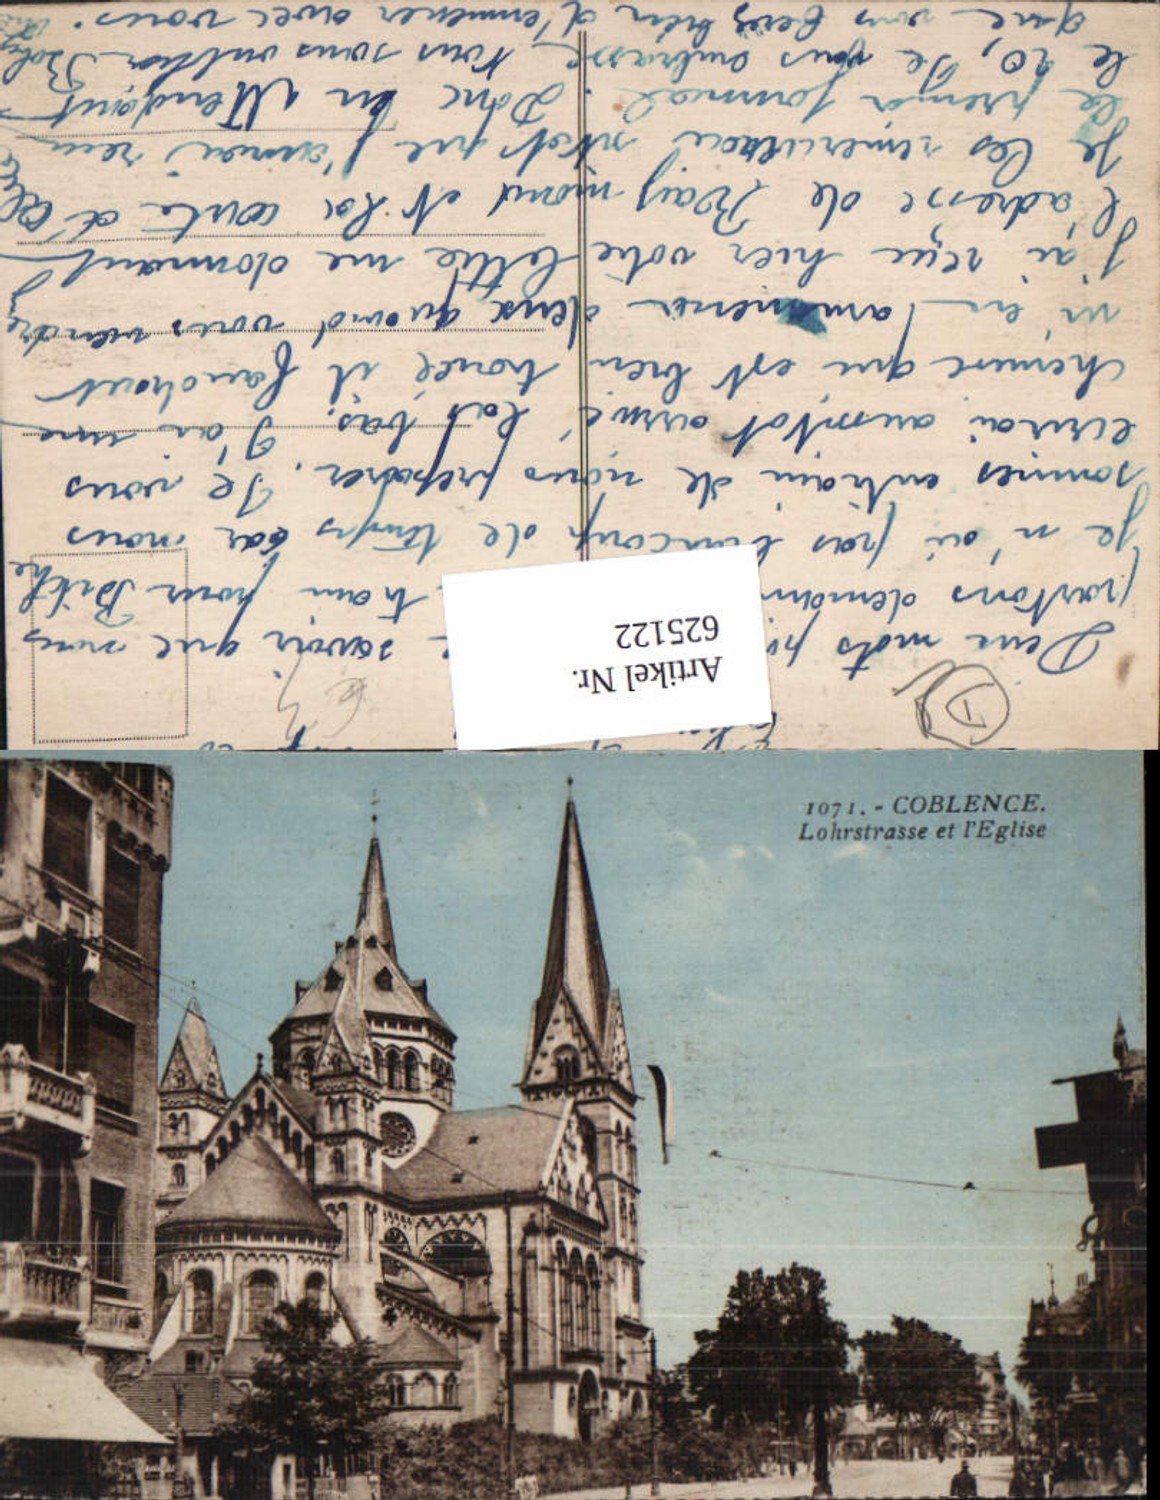 Deux mots
savoir que nous
partons demain
train pour Bitche
Je n'ai pas beaucoup de temps car nous
sommes entrain de nous préparer. Je vous
écrirai aussitôt arrivé las bas. J'ai une
chemise que est bien troué il faudrait
m'en ramener deux quand vous viendrez
J'ai reçu hier votre lettre me donnant
l'adresse de Raymond et la carte d'
Je les remercierai sitôt que j'aurai reçu
le premier journal. Donc en attendant
le 20, Je vous embrasse, Nous vous
que vous ferez bien d'emmener avec vous.
Artikel Nr.
625122
D
1071. - COBLENCE.
Lohrstrasse et l'Eglise